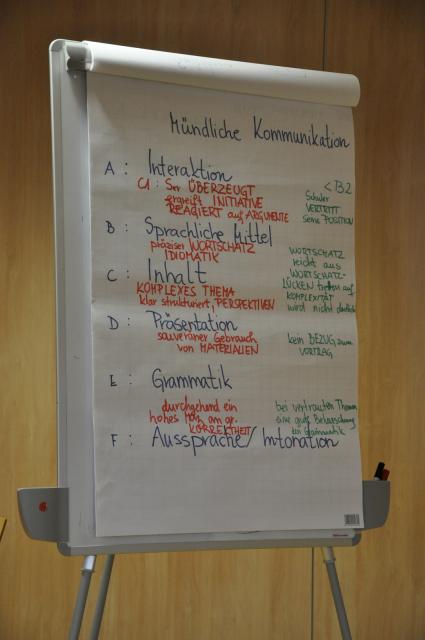 Mündliche Kommunikation
A : Interaktion
C1 : SuS ÜBERZEUGT
ergreift INITIATIVE
REAGIERT auf ARGUMENTE
< B2
Schüler
VERTRITT
seine POSITION
B : Sprachliche Mittel
präziser WORTSCHATZ
IDIOMATIK
WORTSCHATZ
reicht aus
WORTSCHATZ-
LÜCKEN treten auf
KOMPLEXITÄT
wird nicht deutlich
C : Inhalt
KOMPLEXES THEMA
klar strukturiert, PERSPEKTIVEN
D : Präsentation
souveräner Gebrauch
von MATERIALIEN
kein BEZUG zum
VORTRAG
E : Grammatik
durchgehend ein
hohes Maß an gr.
KORREKTHEIT
bei vertrauten Themen
eine gute Beherrschung
der Grammatik
F : Aussprache / Intonation